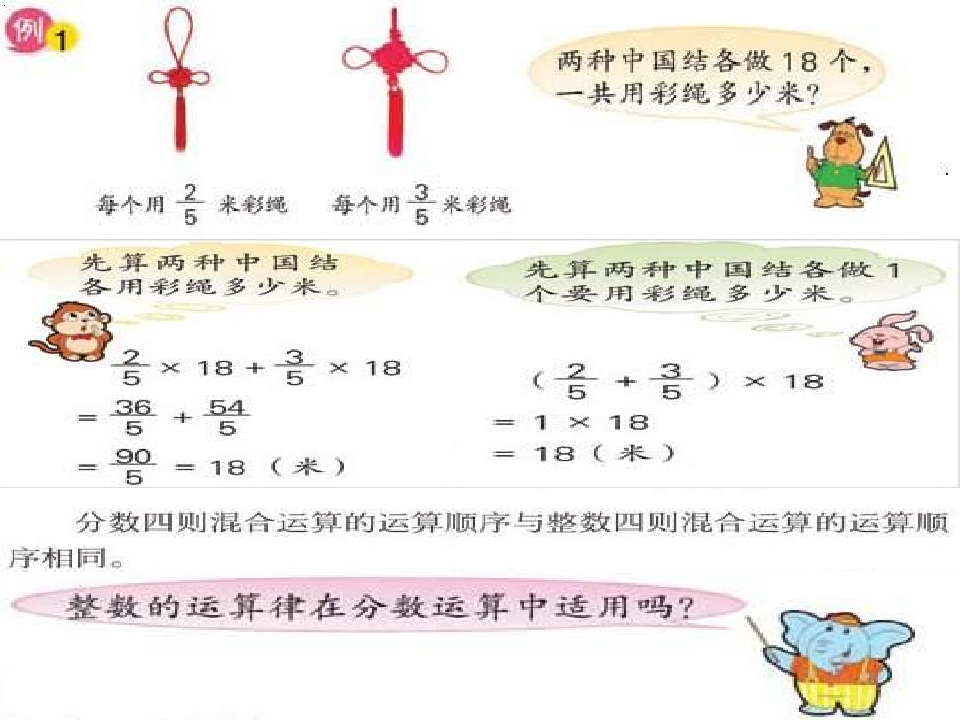 例1
两种中国结各做18个，
一共用彩绳多少米？
每个用 2/5 米彩绳
每个用 3/5 米彩绳
先算两种中国结
各用彩绳多少米。
2/5 × 18 + 3/5 × 18
= 36/5 + 54/5
= 90/5 = 18（米）
先算两种中国结各做1
个要用彩绳多少米。
（2/5 + 3/5）× 18
= 1 × 18
= 18（米）
分数四则混合运算的运算顺序与整数四则混合运算的运算顺
序相同。
整数的运算律在分数运算中适用吗？